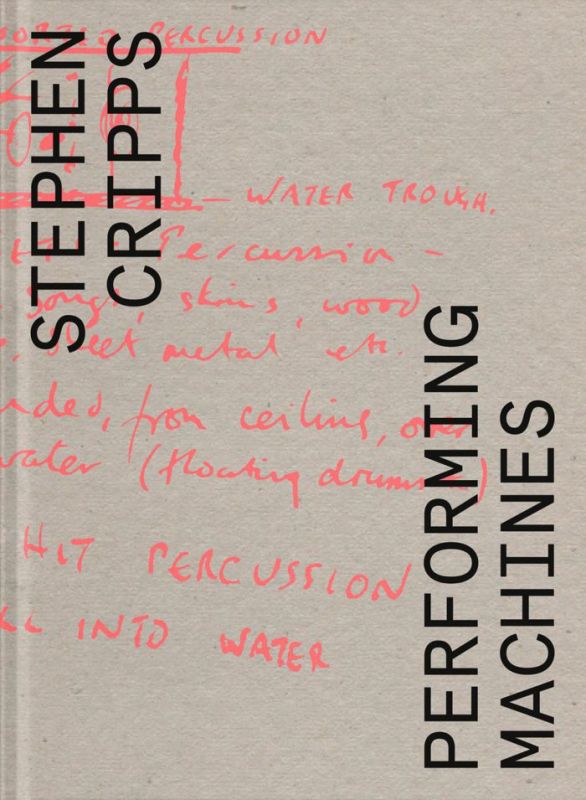 STEPHEN
CRIPPS
PERFORMING
MACHINES
PERCUSSION
— WATER TROUGH.
Percussion —
skins, wood
sheet metal etc.
from ceiling, over
water (floating drums)
HIT PERCUSSION
INTO WATER